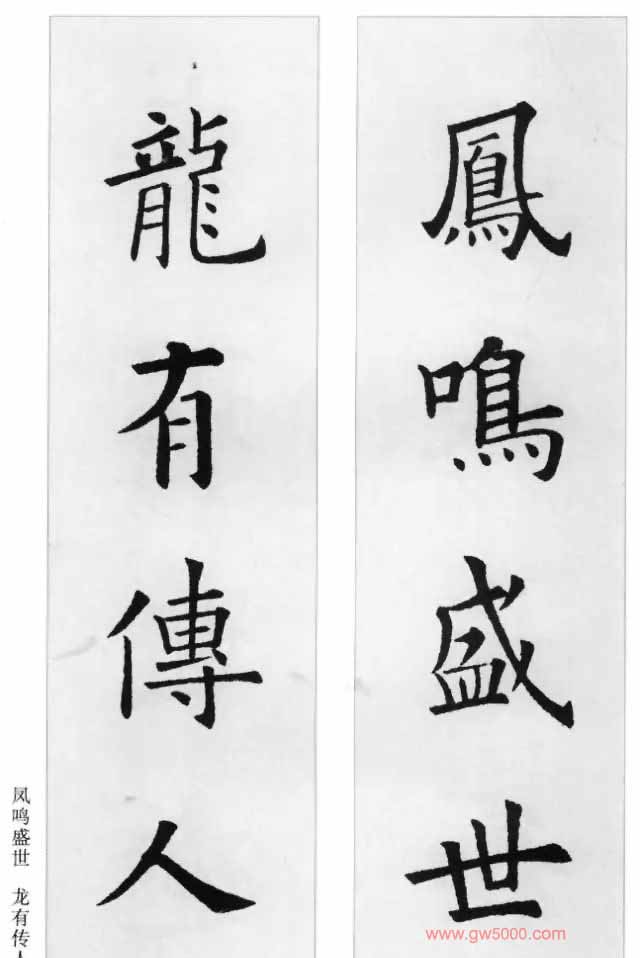 鳳鳴盛世
龍有傳人
凤鸣盛世 龙有传人
www.gw5000.com